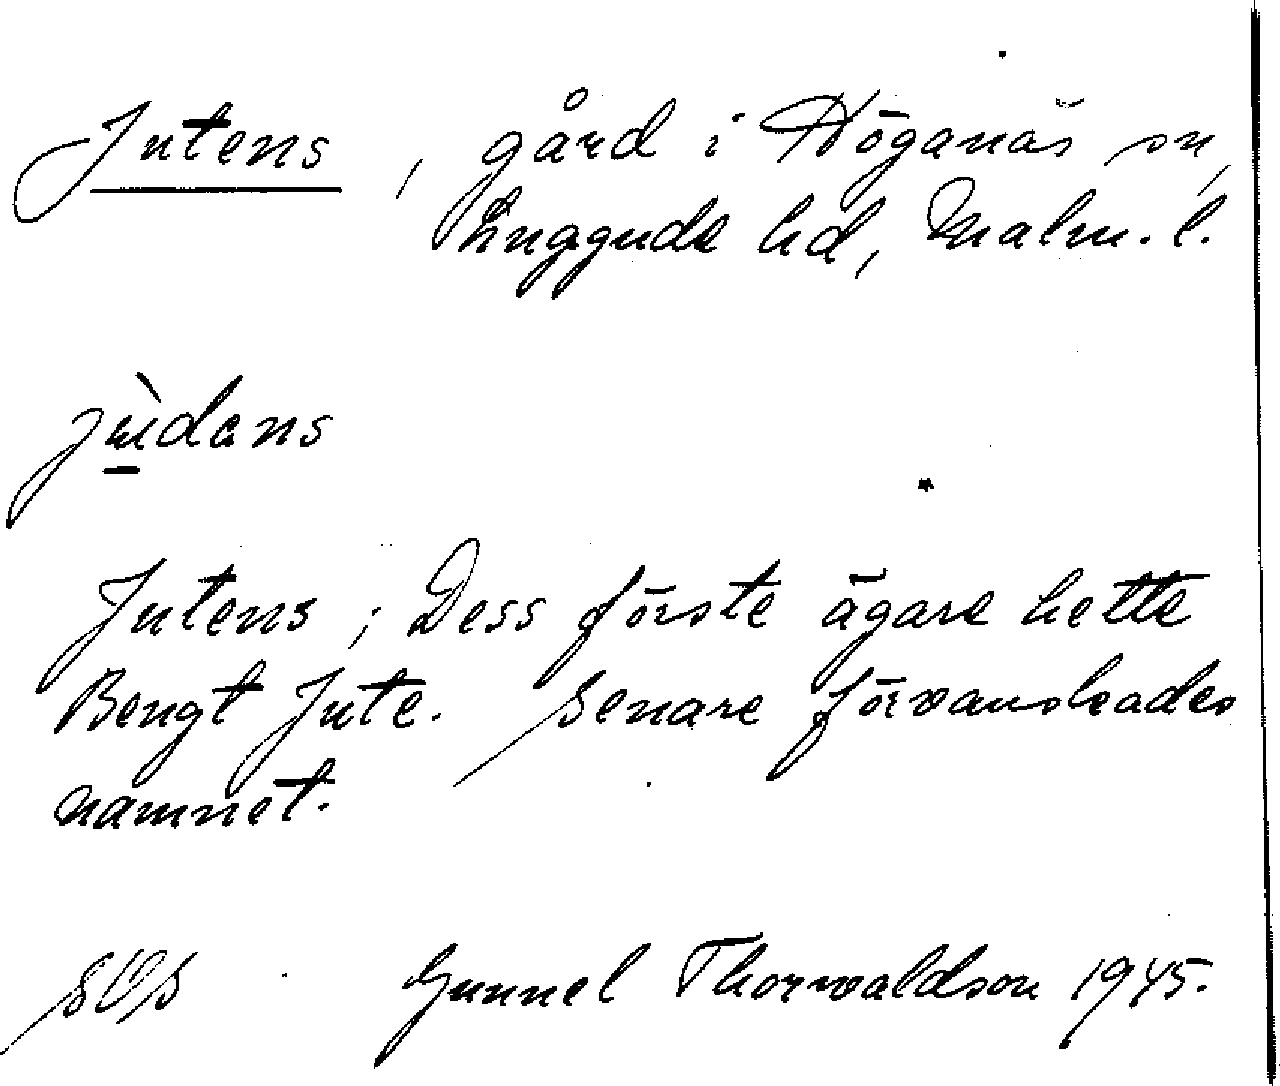 Jutens, gård i Höganäs sn,
Luggude hd, Malm. l.
jùdans
Jutens; Dess förste ägare hette
Bengt Jute. Senare förvanskades
namnet.
Gunnel Thorwaldson 1945.